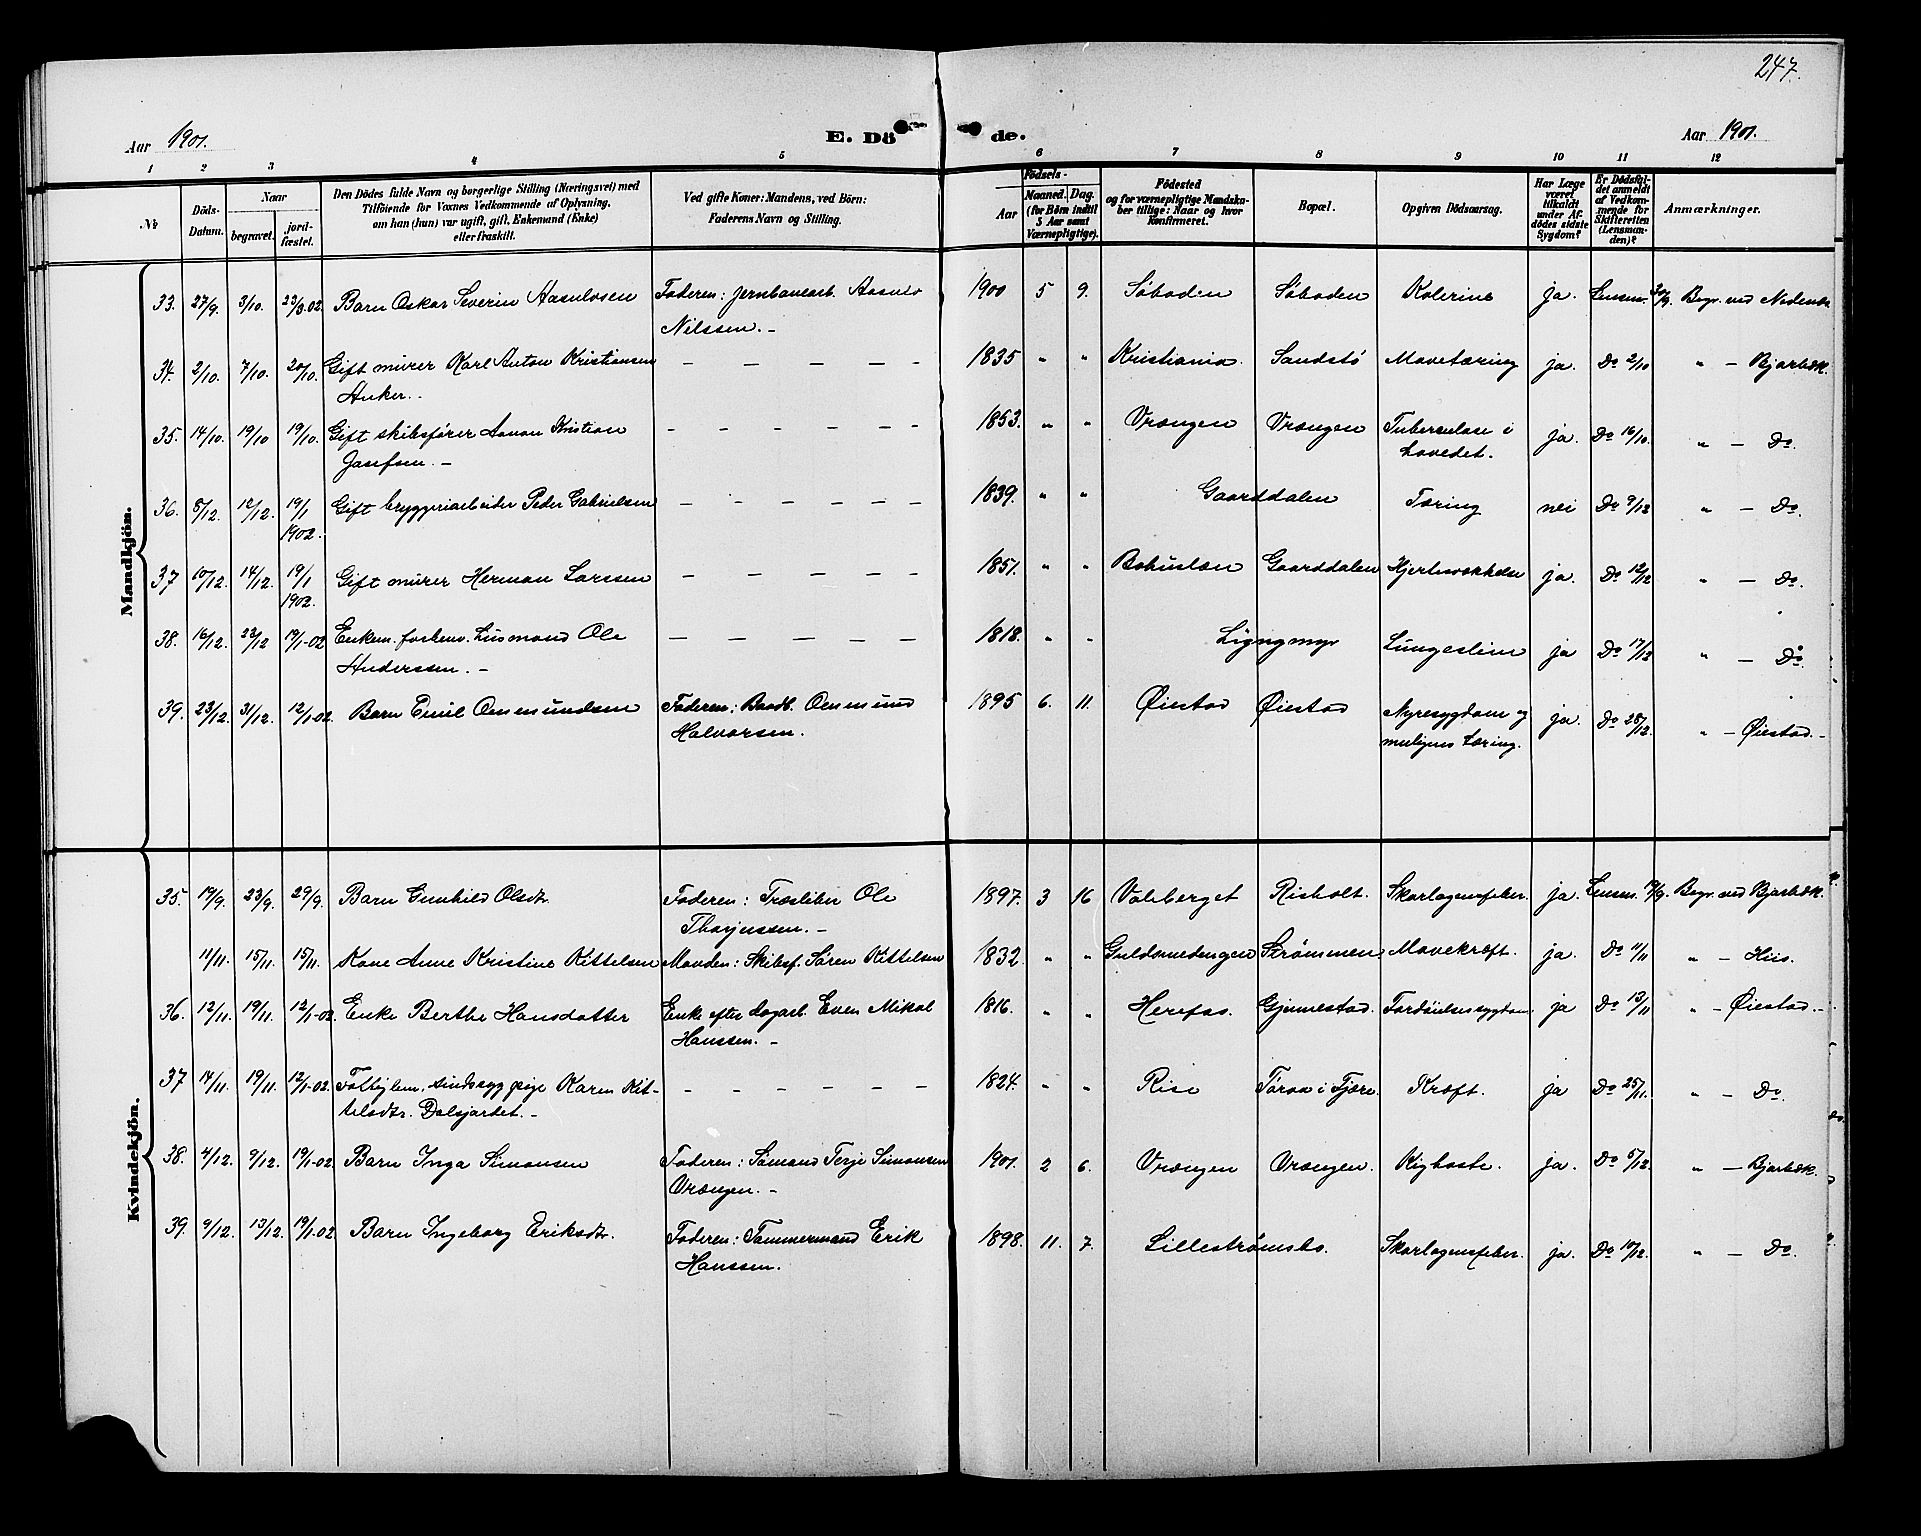 247.
Aar 1901.
E. Dö de.
Aar 1901.
1 2 3 4 5 6 7 8 9 10 11 12
No
Döds-Datum.
Naar
begravet.
jord-fæstet.
Den Dödes fulde Navn og borgerlige Stilling (Næringsvei) med
Tilföiende for Voxnes Vedkommende af Oplysning,
om han (hun) var ugift, gift, Enkemand (Enke)
eller fraskilt.
Ved gifte Koner: Mandens, ved Börn:
Faderens Navn og Stilling.
Födsels-
Aar
Maaned. Dag.
(for Börn indtil
5 Aar samt
Værnepligtige).
Födested
og for værnepligtige Mandska-
ber tillige: Naar og hvor
Konfirmeret.
Bopæl.
Opgiven Dödsaarsag.
Har Læge
været
tilkaldt
under Af-
dödes sidste
Sygdom?
Er Dödsfal-
det anmeldt
af Vedkom-
mende for
Skifteretten
(Lensman-
den)?
Anmærkninger.
Mandkjön.
33. 27/9. 3/10. 23/3.02. Barn Oskar Severin Aasulvsen Faderen: jernbanearb. Aasulv 1900 5 9. Söboden Söboden Kolerine ja. Lensm. 30/9. Begr. ved Nedenæs
Nilssen. –
34. 2/10. 7/10. 20/10. Gift murer Karl Anton Kristiansen – – – – – 1835 " " Kristiania. Sandstö Mavetæring ja. Do 2/10 " – Bjorbæk.
Anker. –
35. 14/10. 19/10 19/10. Gift skibsförer Aanon Kristian – – – – – – 1853. " " Vrængen Vrængen Tuberculose i ja. Do 16/10. " – Do.
Josefsen. – hovedet.
36. 5/12. 12/12. 19/1 Gift bryggeriarbeider Peder Gabrielsen – – – – – 1839. " " Gaarddalen Tæring nei Do 9/12 " – Do.
1902.
37 10/12. 14/12. 19/1 Gift murer Herman Larssen – – – – – 1851. " " Bohuslæn Gaarddalen Hjertesvækkelse ja. Do 12/12 " – Do.
1902.
38. 16/12. 22/12 19/1-02 Enkem. forhenv. Lusmand Ole – – – – – 1818. " " Lyngmyr Lungeslim ja Do 17/12 " – Do
Anderssen. –
39. 23/12. 31/12. 12/1-02. Barn Emil Ommundsen Faderen: Baadb. Ommund 1895 6. 11. Øiestad Øiestad Nyresygdom og ja. Do 28/12. " – Øiestad. –
Halvorsen. muligens tæring.
Kvindekjön.
35. 19/9. 23/9. 29/9. Barn Gunhild Olsdtr. Faderen: Træsliber Ole 1897. 3 16 Valeberget Risholt. Skarlagensfeber. ja. Lensm. Begr. ved Bjorbæk.
Thorjussen. –
11/11. 15/11. 15/11. Kone Anne Kristine Kittelsen Manden: Skibsf. Sören Kittelsen 1832. " " Guldsmedengen Strömmen Mavekræft. ja. Do 11/11 " – Hiis.
36. 12/11. 19/11. 12/1-02. Enke Berthe Hansdatter Enke efter dagarb. Even Mikal 1816. " " Herefos. Gjennestad. Fordöielsessygdom ja Do 13/11 " – Øiestad. –
Hanssen. –
37 14/11. 19/11. 12/1-02. Fattiglem, sindssyg pige Karen Kit- – – – – – – 1824. " " Rise Torva i Fjære. Kræft. ja Do 25/11. " – Do.
telsdtr. Dalsjordet. –
38. 4/12. 9/12. 19/1-02 Barn Inga Simonsen Faderen: Sömand Terje Simonsen 1901. 2 6. Vrængen Vrængen. Kighoste. ja. Do 5/12. " – Bjorbæk.
Vrængen. –
39. 9/12. 13/12. 19/1-02 Barn Ingeborg Eriksdtr. Faderen: Tømmermand Erik 1898. 11. 7. Lilleströmsbo. Skarlagensfeber. ja. Do 10/12. " – Do.
Hanssen.